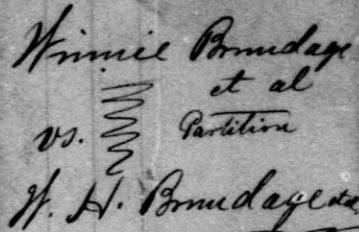 Winnie Brundage
et al
vs. Partition
W. H. Brundage et al